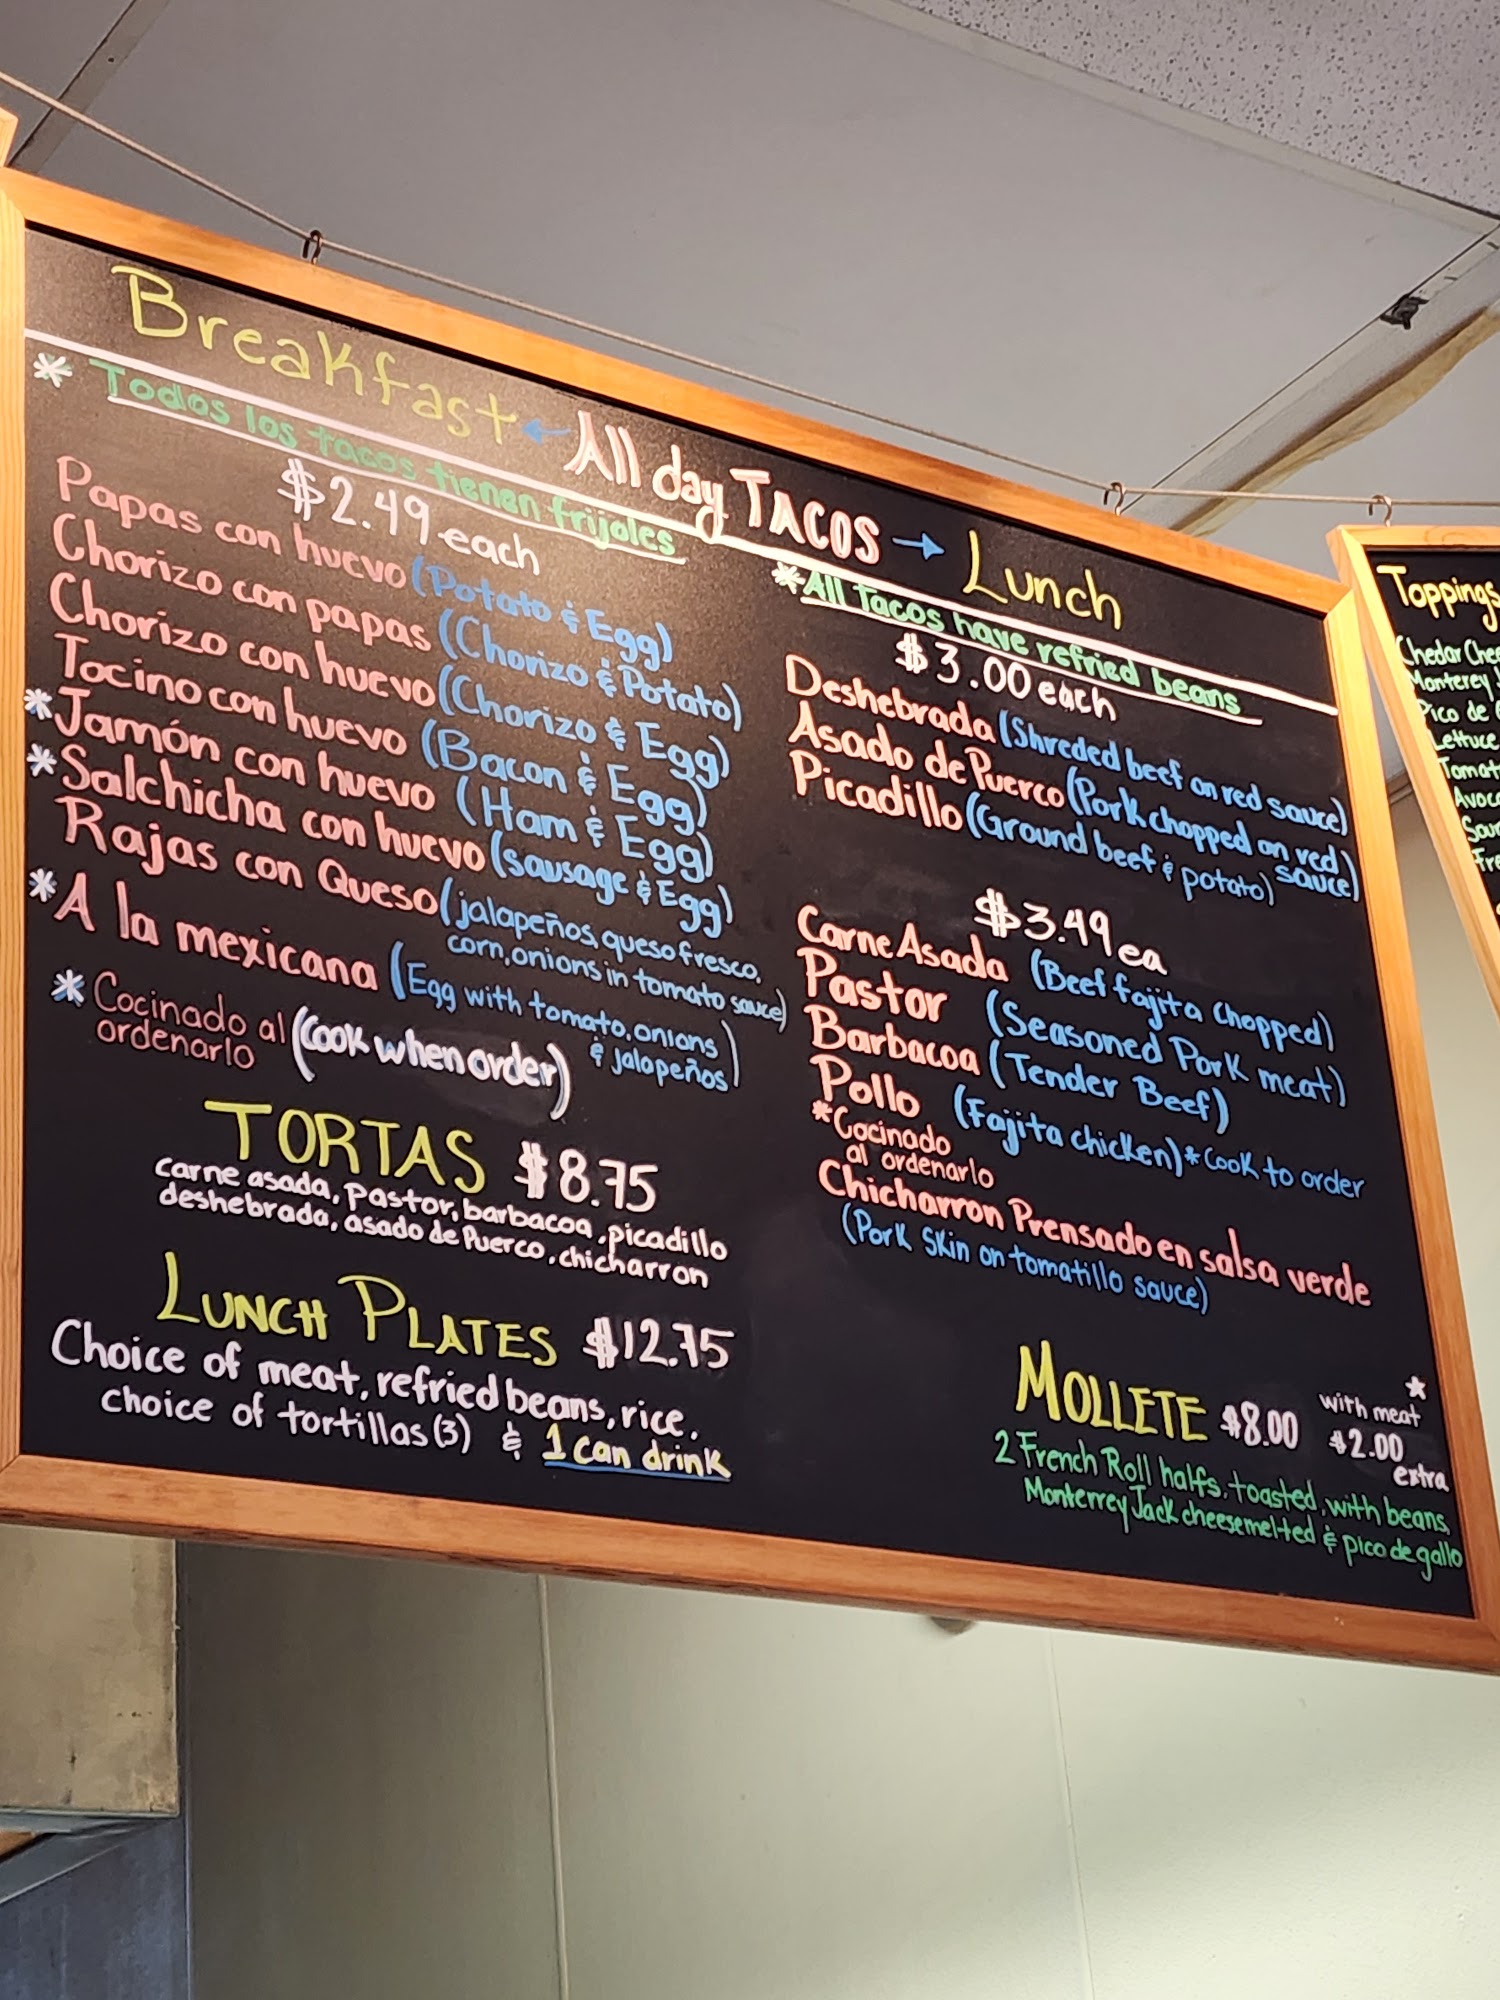 Breakfast ← All day TACOS → Lunch
* Todos los tacos tienen frijoles
$2.49 each
Papas con huevo (Potato & Egg)
Chorizo con papas (Chorizo & Potato)
Chorizo con huevo (Chorizo & Egg)
Tocino con huevo (Bacon & Egg)
* Jamón con huevo (Ham & Egg)
* Salchicha con huevo (sausage & Egg)
Rajas con Queso (jalapeños, queso fresco,
corn, onions in tomato sauce)
* A la mexicana (Egg with tomato, onions
& jalapeños)
* Cocinado al
ordenarlo (Cook when order)
TORTAS $8.75
carne asada, pastor, barbacoa, picadillo
deshebrada, asado de Puerco, chicharron
LUNCH PLATES $12.75
Choice of meat, refried beans, rice,
choice of tortillas (3) & 1 can drink
* All tacos have refried beans
$3.00 each
Deshebrada (Shreded beef on red sauce)
Asado de Puerco (Pork chopped on red
sauce)
Picadillo (Ground beef & potato)
$3.49 ea
Carne Asada (Beef fajita chopped)
Pastor (Seasoned Pork meat)
Barbacoa (Tender Beef)
Pollo (Fajita chicken) * Cook to order
* Cocinado
al ordenarlo
Chicharron Prensado en salsa verde
(Pork Skin on tomatillo sauce)
MOLLETE $8.00
with meat
$2.00
extra
2 French Roll halfs, toasted, with beans,
Monterrey Jack cheese melted & pico de gallo
Toppings
Chedar
Monterey
Pico de
Lettuce